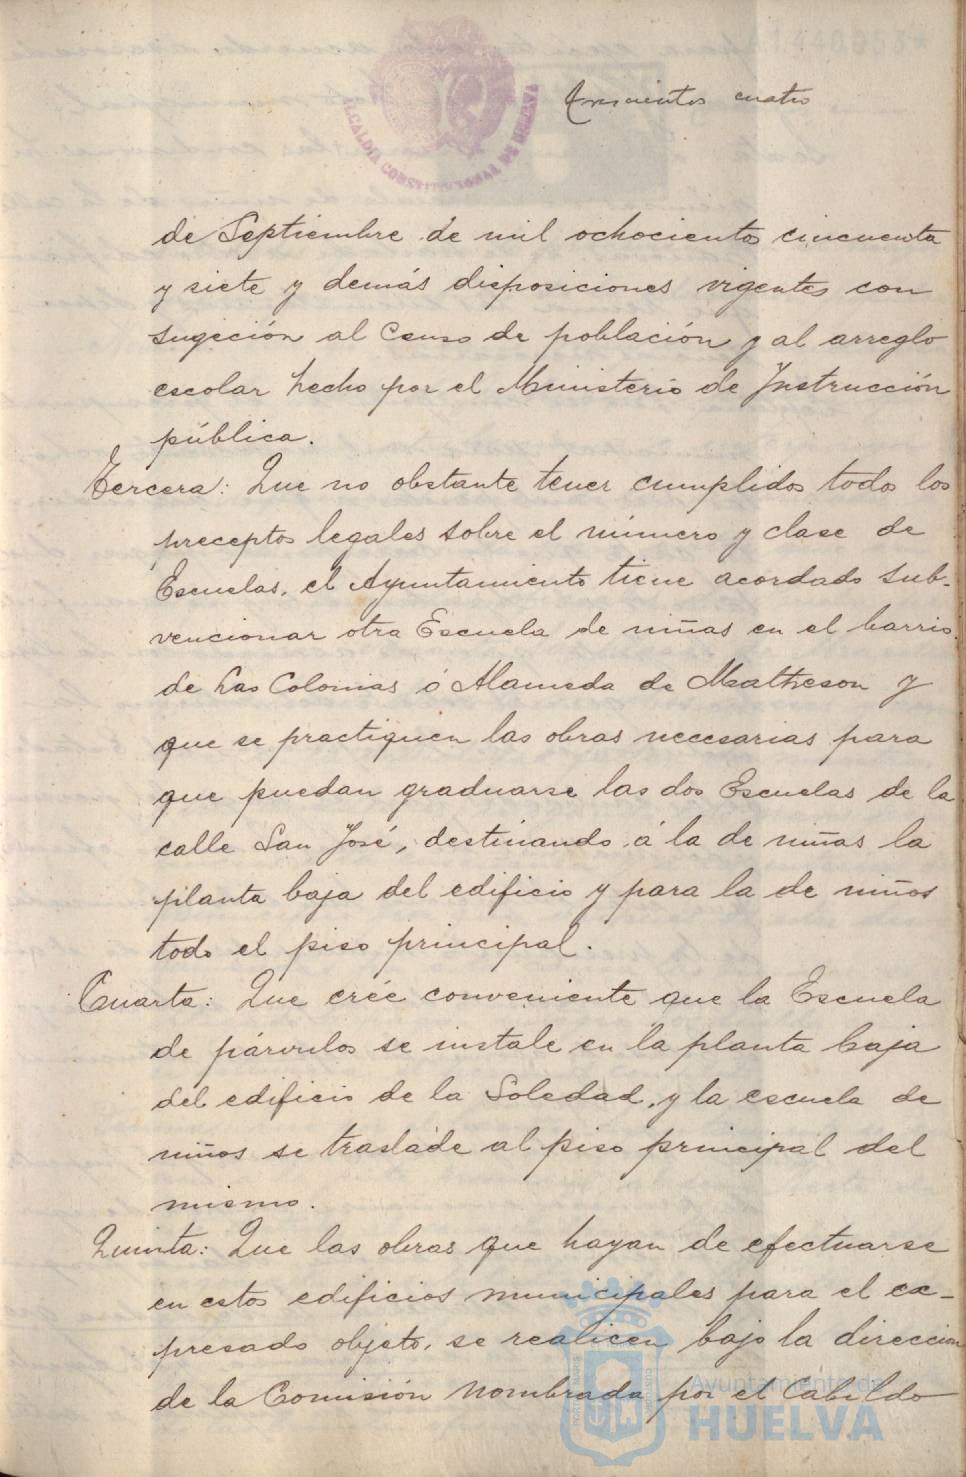 A1.440.053*
Trescientos cuatro
ALCALDÍA CONSTITUCIONAL DE HUELVA
de Septiembre de mil ochocientos cincuenta
y siete y demás disposiciones vigentes con
sugeción al Censo de población y al arreglo
escolar hecho por el Ministerio de Instrucción
pública.
Tercera: Que no obstante tener cumplidos todos los
preceptos legales sobre el número y clase de
Escuelas, el Ayuntamiento tiene acordado sub-
vencionar otra Escuela de niñas en el barrio
de Las Colonias ó Alameda de Matheson y
que se practiquen las obras necesarias para
que puedan graduarse las dos Escuelas de la
calle San José, destinando á la de niñas la
planta baja del edificio y para la de niños
todo el piso principal.
Cuarta: Que crée conveniente que la Escuela
de párvulos se instale en la planta baja
del edificio de la Soledad, y la escuela de
niños se traslade al piso principal del
mismo.
Quinta: Que las obras que hayan de efectuarse
en estos edificios municipales para el ex-
presado objeto, se realicen bajo la dirección
de la Comisión nombrada por el Cabildo
Ayuntamiento de
HUELVA